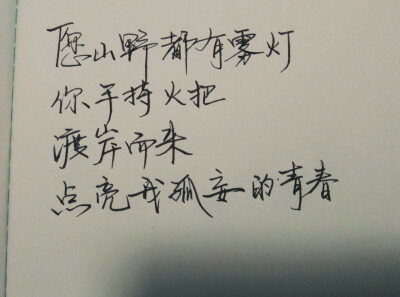 愿山野都有雾灯
你手持火把
渡岸而来
点亮我孤妄的青春